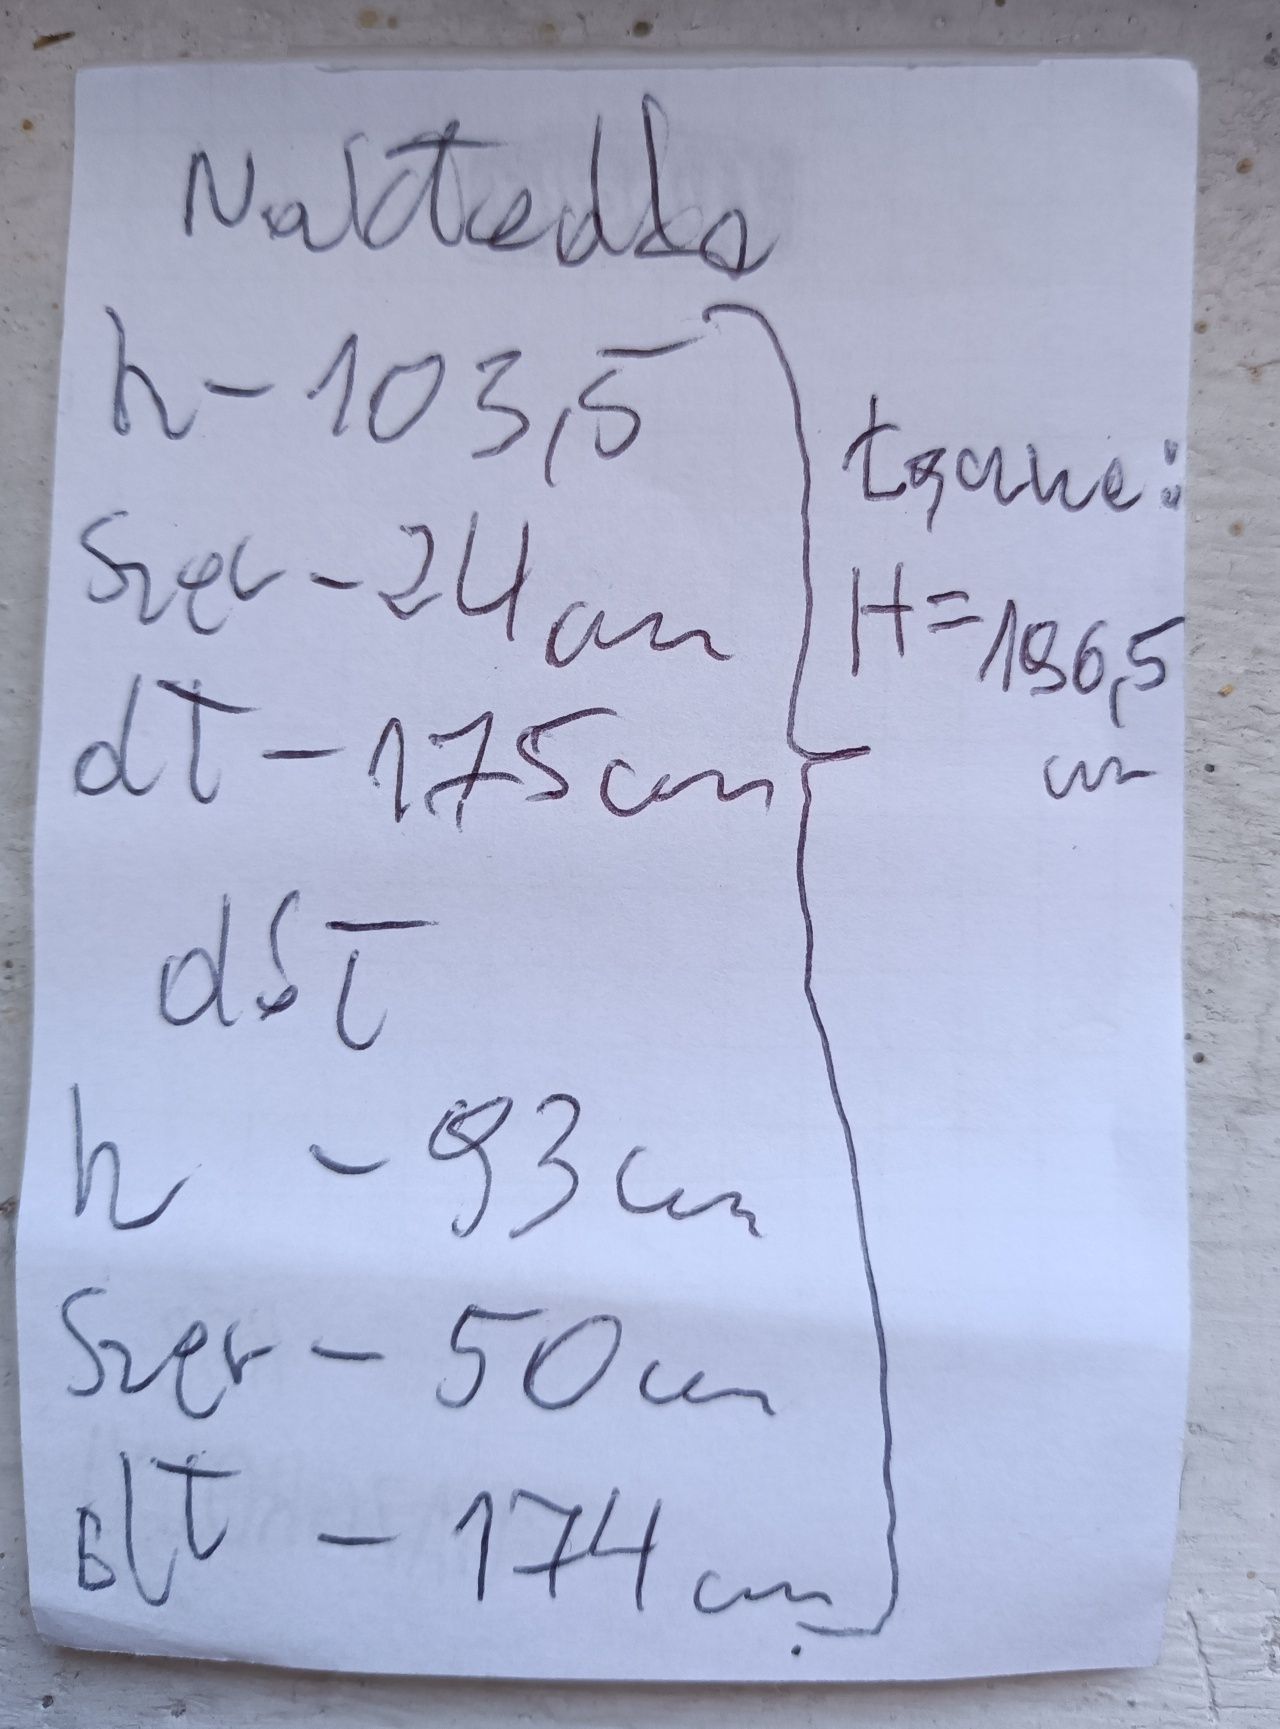 Nakładka
h - 103,5
szer - 24 cm
dł - 175 cm
dół
h - 93 cm
szer - 50 cm
dł - 174 cm
Łącznie:
H = 196,5
cm